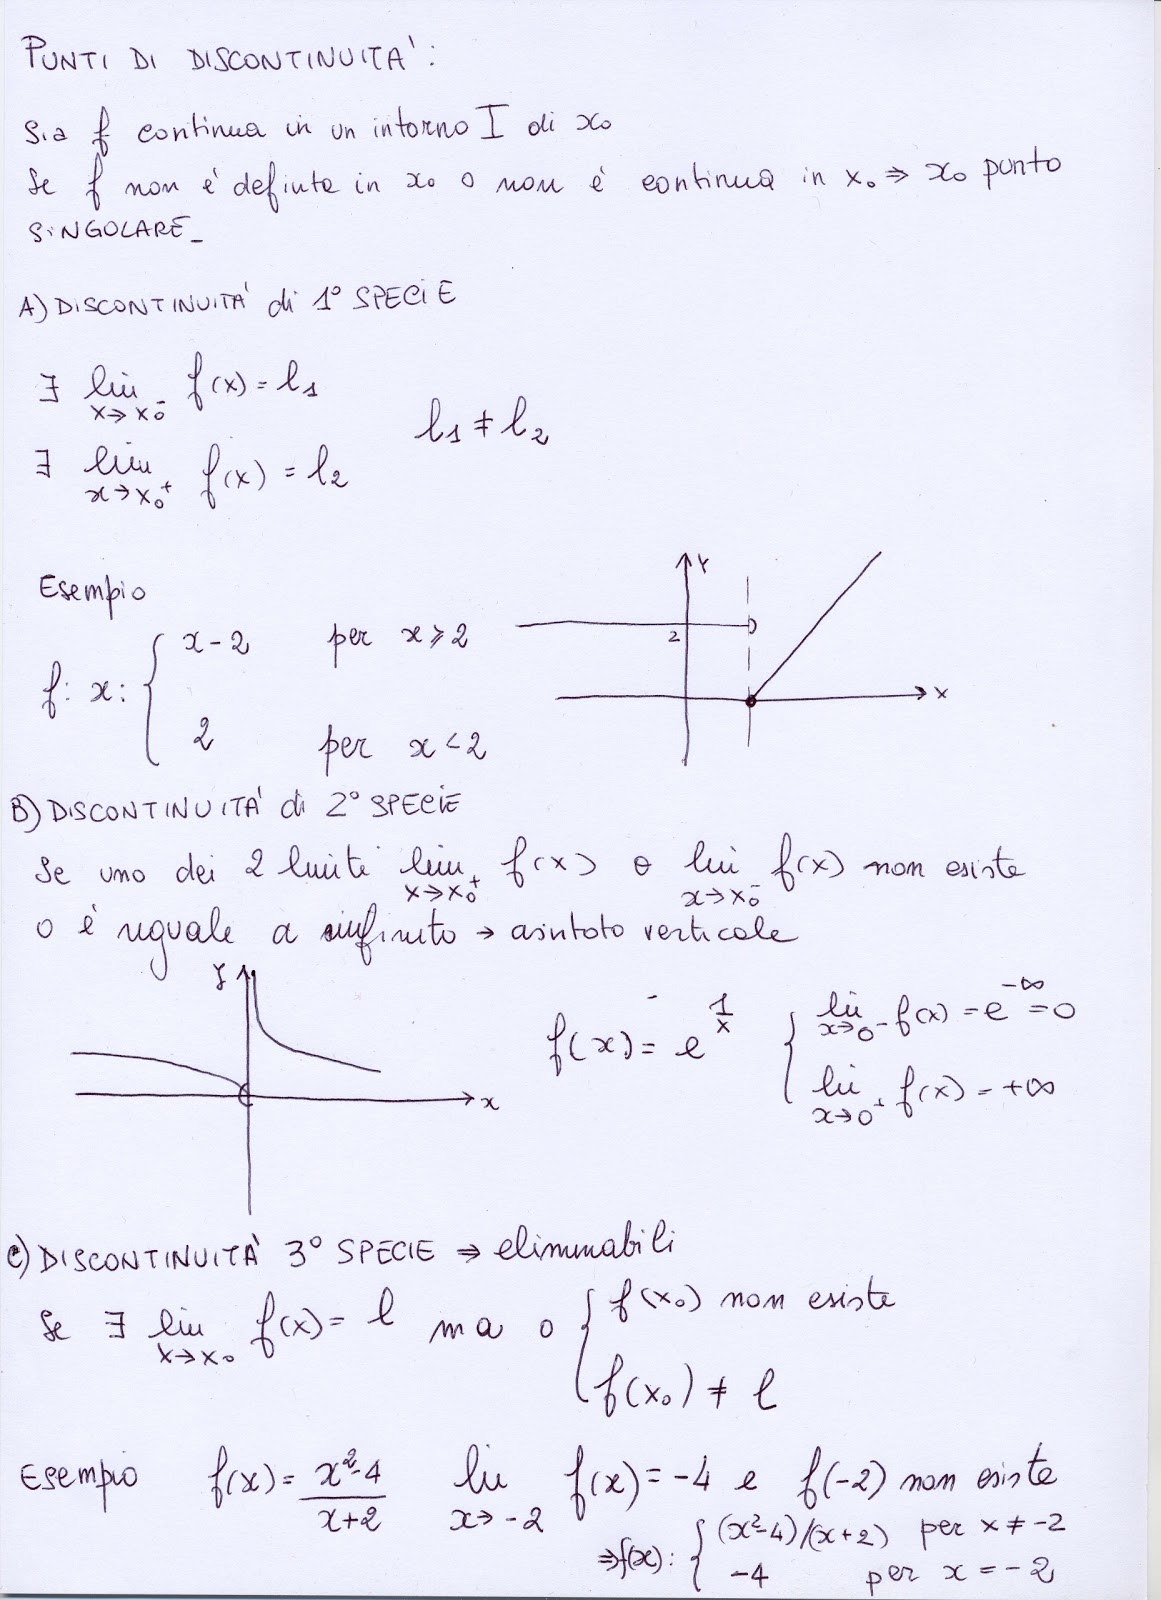 PUNTI DI DISCONTINUITA':
Sia f continua in un intorno I di x₀
Se f non è definita in x₀ o non è continua in x₀ ⇒ x₀ punto
SINGOLARE_
A) DISCONTINUITÀ di 1° SPECIE
∃ lim x→x₀⁻ f(x) = l₁
l₁ ≠ l₂
∃ lim x→x₀⁺ f(x) = l₂
Esempio
f: x: { x-2 per x ≥ 2
2 per x < 2
Y
2
x
B) DISCONTINUITÀ di 2° SPECIE
Se uno dei 2 limiti lim x→x₀⁺ f(x) o lim x→x₀⁻ f(x) non esiste
o è uguale a infinito → asintoto verticale
y
x
f(x) = e^(1/x) { lim x→0⁻ f(x) = e^(-∞) = 0
lim x→0⁺ f(x) = +∞
C) DISCONTINUITÀ 3° SPECIE ⇒ eliminabili
Se ∃ lim x→x₀ f(x) = l ma o { f(x₀) non esiste
f(x₀) ≠ l
Esempio f(x) = (x²-4)/(x+2) lim x→-2 f(x) = -4 e f(-2) non esiste
⇒ f(x): { (x²-4)/(x+2) per x ≠ -2
-4 per x = -2